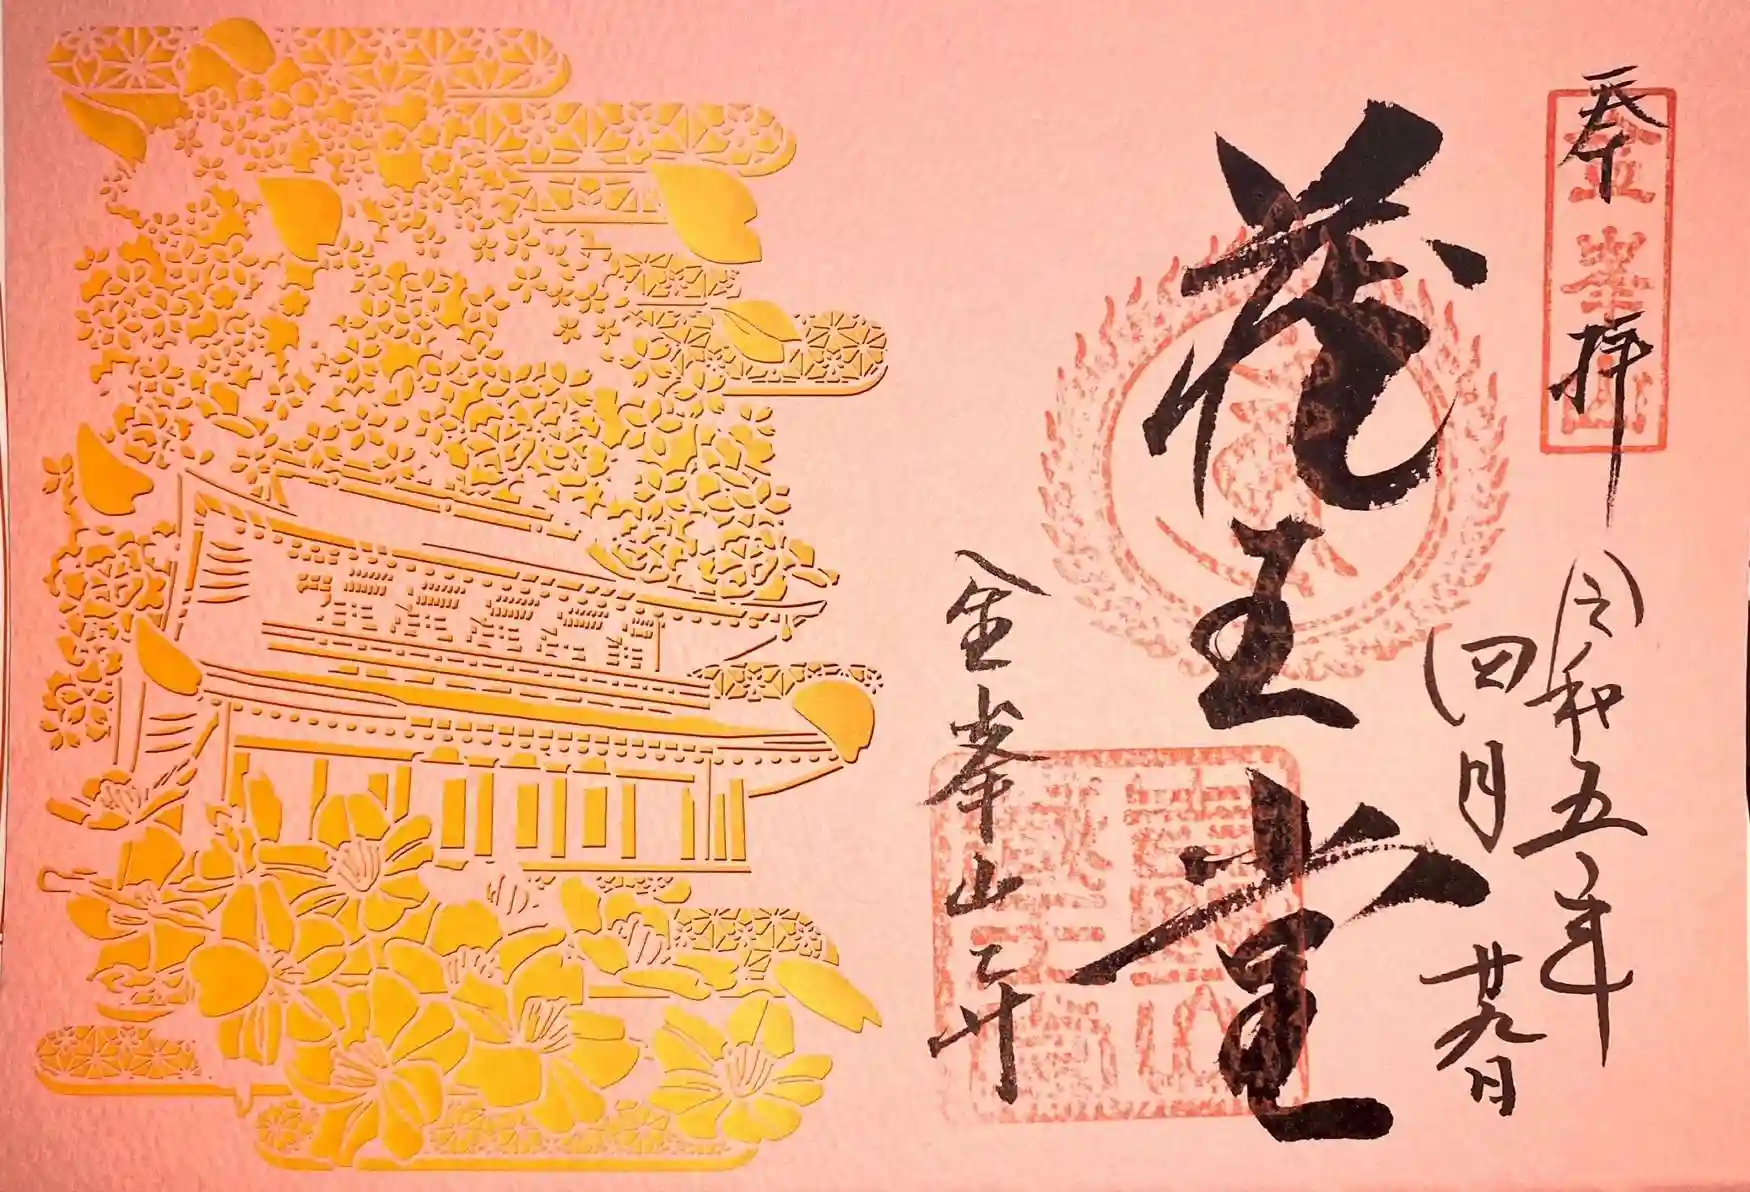 奉拝
金峯山
令和五年
四月廿九日
蔵王堂
金峯山寺